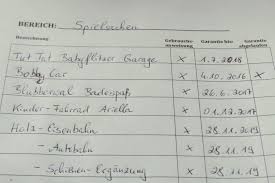 BEREICH: Spielsachen
Bezeichnung Gebrauchsanweisung Garantie bis Garantie abgelaufen
Tut Tut Babyflitzer Garage x 1.7.2018
Bobby Car x 4.10.2016 x
Blubberwal Badespaß x 26.6.2017
Kinder-Fahrrad Ariella x 01.12.2017
Holz-Eisenbahn x 28.11.2019
- Autobahn x 28.11.19
- Schienen-Ergänzung x 28.11.19